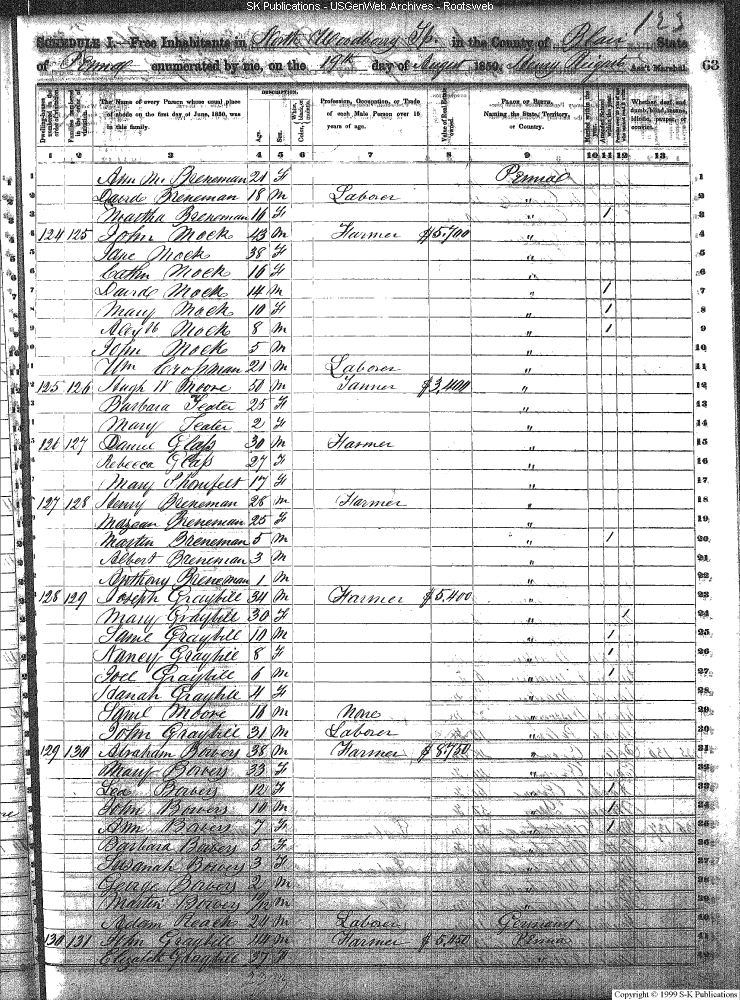 SK Publications - USGenWeb Archives - Rootsweb
123
SCHEDULE I.—Free Inhabitants in North Woodbury Tp. in the County of Blair State
of Penna enumerated by me, on the 19th day of August 1850. Henry Ass't Marshal. 63
Dwelling-houses numbered in the order of visitation. Families numbered in the order of visitation. The Name of every Person whose usual place of abode on the first day of June, 1850, was in this family. DESCRIPTION. Age. Sex. Color, White, black, or mulatto. Profession, Occupation, or Trade of each Male Person over 15 years of age. Value of Real Estate owned. PLACE OF BIRTH, Naming the State, Territory, or Country. Married within the year. Whether deaf and dumb, blind, insane, idiotic, pauper, or convict.
1 2 3 4 5 6 7 8 9 10 11 12 13
1 Ann M. Breneman 21 F Penna 1
2 David Breneman 18 M Laborer " 2
3 Martha Breneman 16 F " 1 3
4 124 125 John Mock 43 M Farmer $5,700 " 4
5 Jane Mock 38 F " 5
6 Cathn Mock 16 F " 6
7 David Mock 14 M " 1 7
8 Mary Mock 10 F " 1 8
9 Alexr Mock 8 M " 1 9
John Mock 5 M " 10
Wm Crossman 21 M Laborer " 11
125 126 Hugh W Moore 50 M Tanner $3,400 " 12
Barbara Teater 25 F " 13
Mary Teater 2 F " 14
126 127 Daniel Glass 30 M Farmer " 15
Rebecca Glass 27 F " 16
Mary 17 F " 17
127 128 Henry Breneman 28 M Farmer " 18
Breneman 25 F " 19
Martin Breneman 5 M " 1 20
Albert Breneman 3 M " 21
Anthony Breneman 1 M " 22
128 129 Joseph Graybill 34 M Farmer $5,400 " 23
Mary Graybill 30 F " 1 24
Saml Graybill 10 M " 1 25
Nancy Graybill 8 F " 1 26
Joel Graybill 6 M " 1 27
Hanah Graybill 4 F " 28
Saml Moore 16 M None " 29
John Graybill 31 M Laborer " 30
129 130 Abraham Bowers 38 M Farmer $8,750 " 31
Mary Bowers 33 F " 32
Lea Bowers 12 F " 1 33
John Bowers 10 M " 1 34
Ann Bowers 7 F " 1 35
Barbara Bowers 5 F " 36
Susanah Bowers 3 F " 37
George Bowers 2 M " 38
Martin Bowers M " 39
Adam Roack 24 M Laborer Germany 40
130 131 John Graybill 44 M Farmer $5,450 Penna 41
Elizabeth Graybill 37 F " 42
Copyright © 1999 S-K Publications